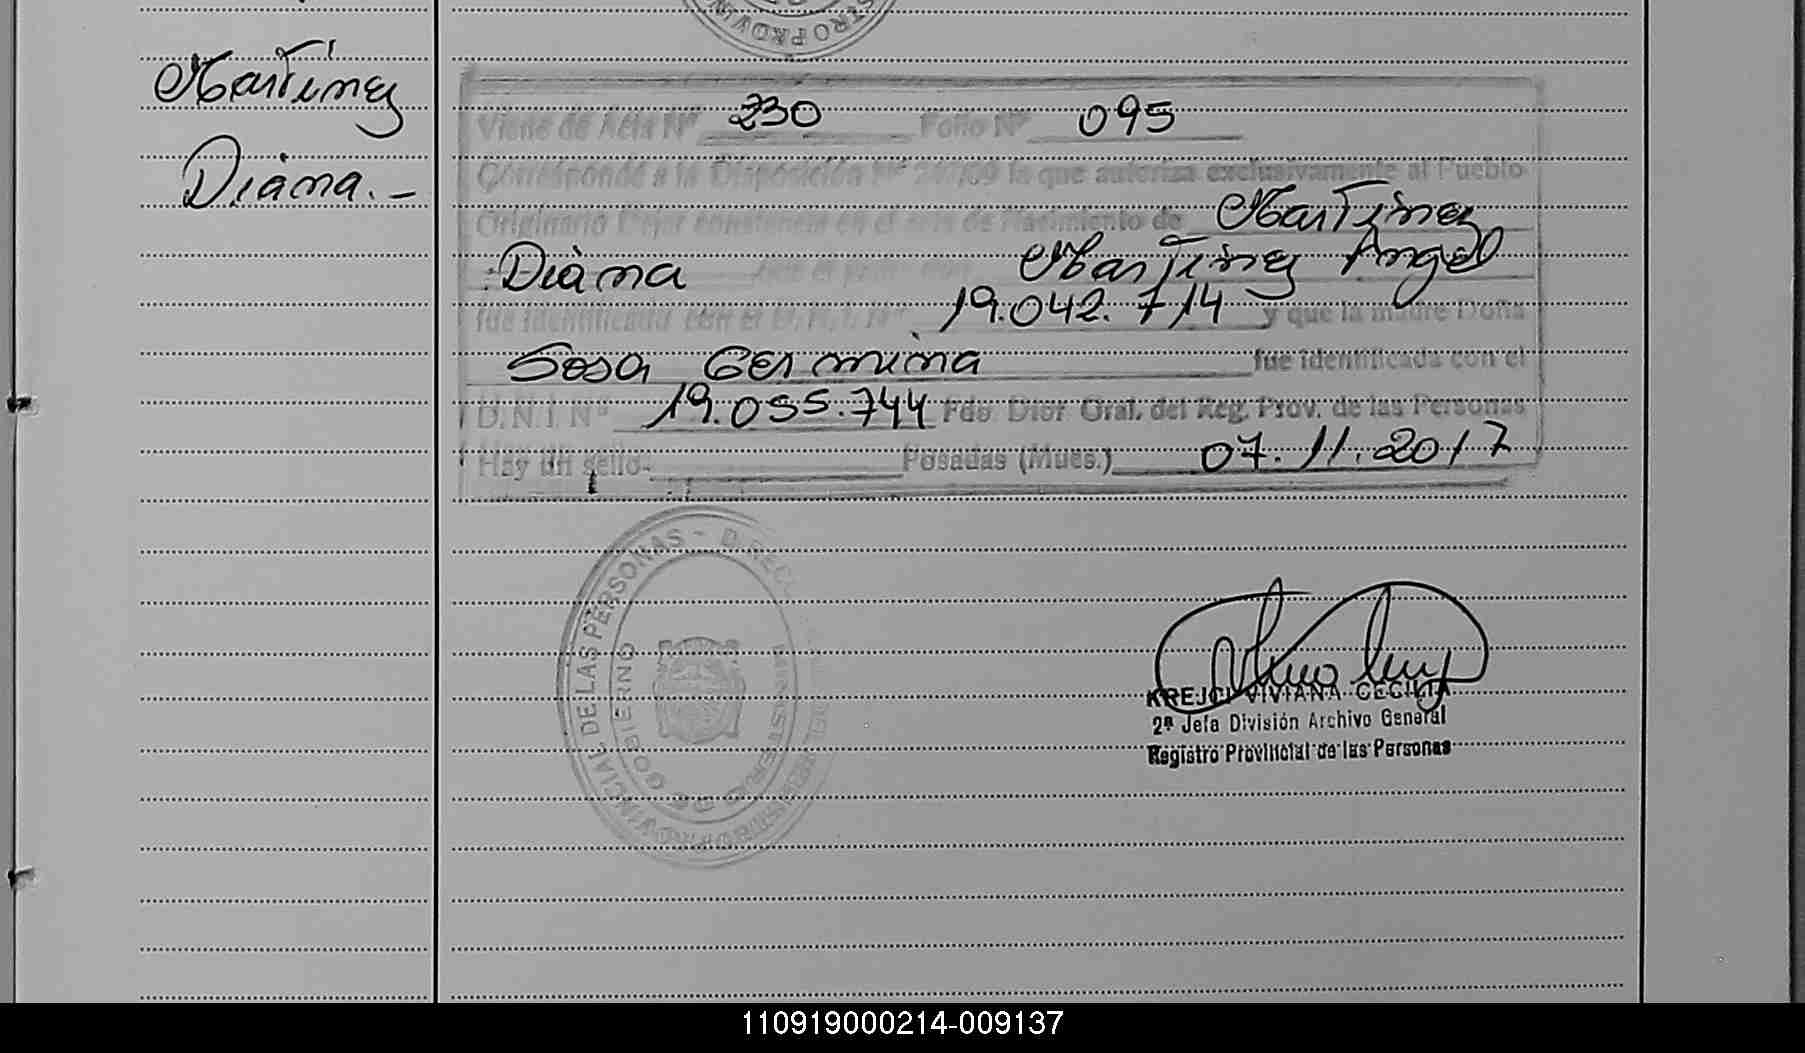 Martínez
Diana.-
Viene de Acta Nº 230 Folio Nº 095
Corresponde a la Disposición Nº 240/09 la que autoriza exclusivamente al Pueblo
Originario Dejar constancia en el acta de Nacimiento de Martinez
Diana que el padre don Martinez Angel
fue identificado con el D.N.I. Nº 19.042.714 y que la madre Doña
Sosa Germina fue identificada con el
D.N.I. Nº 19.055.744 Fdo. Dtor Gral. del Reg. Prov. de las Personas
Hay un sello- Posadas (Mnes.) 07.11.2017
DE LAS PERSONAS - DIREC
GOBIERNO
MINISTERIO DE
KREJCI VIVIANA CECILIA
2ª Jefa División Archivo General
Registro Provincial de las Personas
110919000214-009137